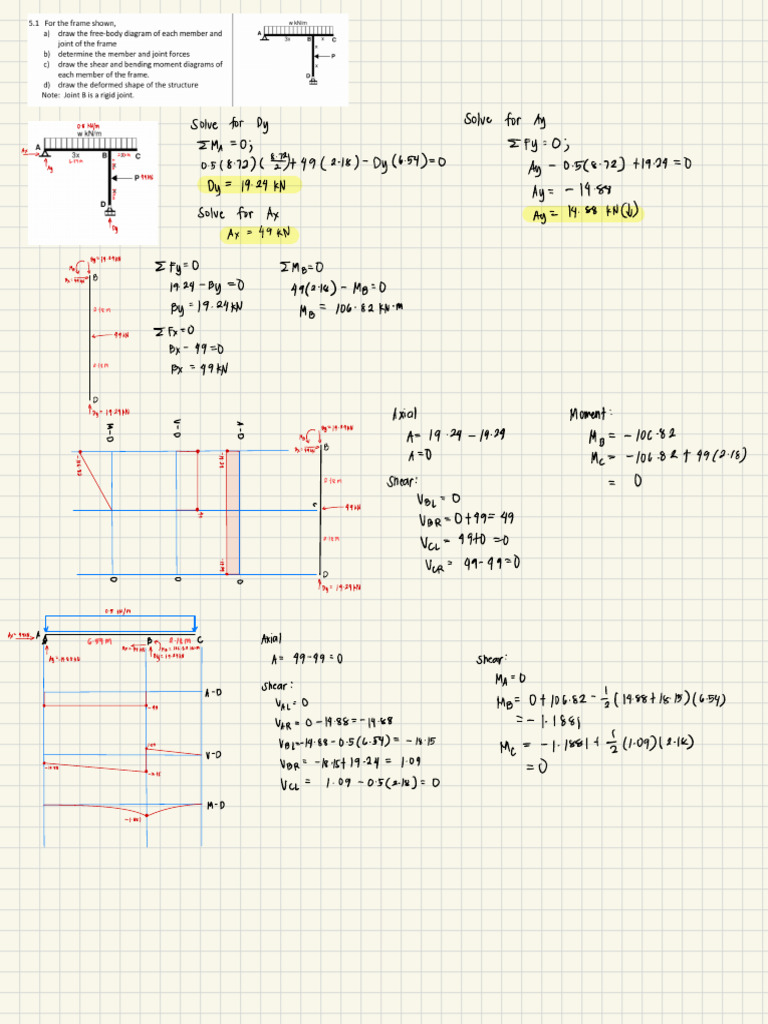 5.1 For the frame shown,
a) draw the free-body diagram of each member and
joint of the frame
b) determine the member and joint forces
c) draw the shear and bending moment diagrams of
each member of the frame.
d) draw the deformed shape of the structure
Note: Joint B is a rigid joint.
w kN/m
A
3x
B
x
C
x
P
x
D
0.5 kN/m
w kN/m
Ax
A
3x
B
C
6.54m
2.18m
P
49kN
D
Ay
Dy
Solve for Dy
ΣMA = 0;
0.5(8.72)(8.72/2) + 49(2.18) - Dy(6.54) = 0
Dy = 19.24 kN
Solve for Ax
Ax = 49 kN
Solve for Ay
ΣFy = 0;
Ay - 0.5(8.72) + 19.24 = 0
Ay = - 14.88
Ay = 14.88 kN(↓)
By = 19.24kN
MB
Bx = 49kN
B
2.18m
49kN
2.18m
D
Dy = 19.24kN
ΣFy = 0
19.24 - By = 0
By = 19.24 kN
ΣFx = 0
Bx - 49 = 0
Bx = 49 kN
ΣMB = 0
49(2.18) - MB = 0
MB = 106.82 kN·m
M-D
V-D
A-D
-106.82
49
-19.24
-19.24
0
0
0
By = 19.24kN
MB
Bx = 49kN
B
2.18m
C
49kN
2.18m
D
Dy = 19.24kN
Axial
A = 19.24 - 19.24
A = 0
Shear:
VBL = 0
VBR = 0 + 49 = 49
VCL = 49 + 0 = 0
VCR = 49 - 49 = 0
Moment:
MB = - 106.82
MC = - 106.82 + 49(2.18)
= 0
0.5 kN/m
Ax = 49kN
A
6.54m
B
2.18m
C
Ay = 14.88kN
Bx = 49kN
MB = 106.82 kN·m
By = 19.24kN
A-D
-49
1.09
V-D
-14.88
-18.15
M-D
-1.1881
Axial
A = 49 - 49 = 0
Shear:
VAL = 0
VAR = 0 - 14.88 = -14.88
VBL = -14.88 - 0.5(6.54) = - 18.15
VBR = - 18.15 + 19.24 = 1.09
VCL = 1.09 - 0.5(2.18) = 0
Shear:
MA = 0
MB = 0 + 106.82 - 1/2 (14.88 + 18.15)(6.54)
= - 1.1881
MC = - 1.1881 + 1/2 (1.09)(2.18)
= 0